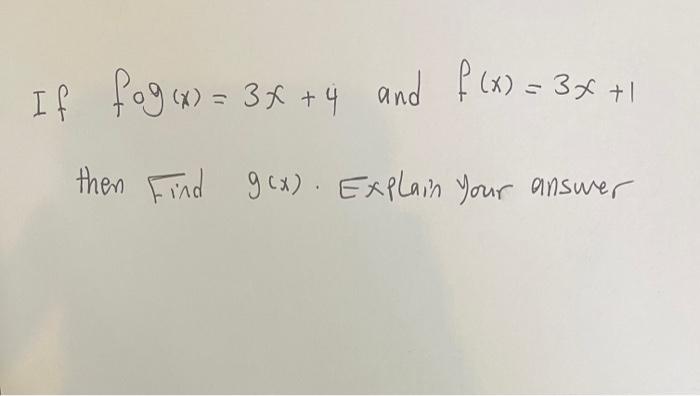 If fog(x) = 3x + 4 and f(x) = 3x +1
then Find g(x). Explain your answer